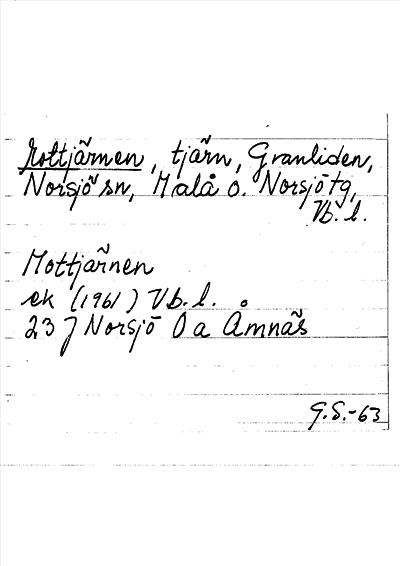 Mottjärnen, tjärn, Granliden,
Norsjö sn, Malå o. Norsjö tg,
Vb. l.
Mottjärnen
ek (1961) Vb. l.
23 J Norsjö 0 a Åmnäs
G.S.-63